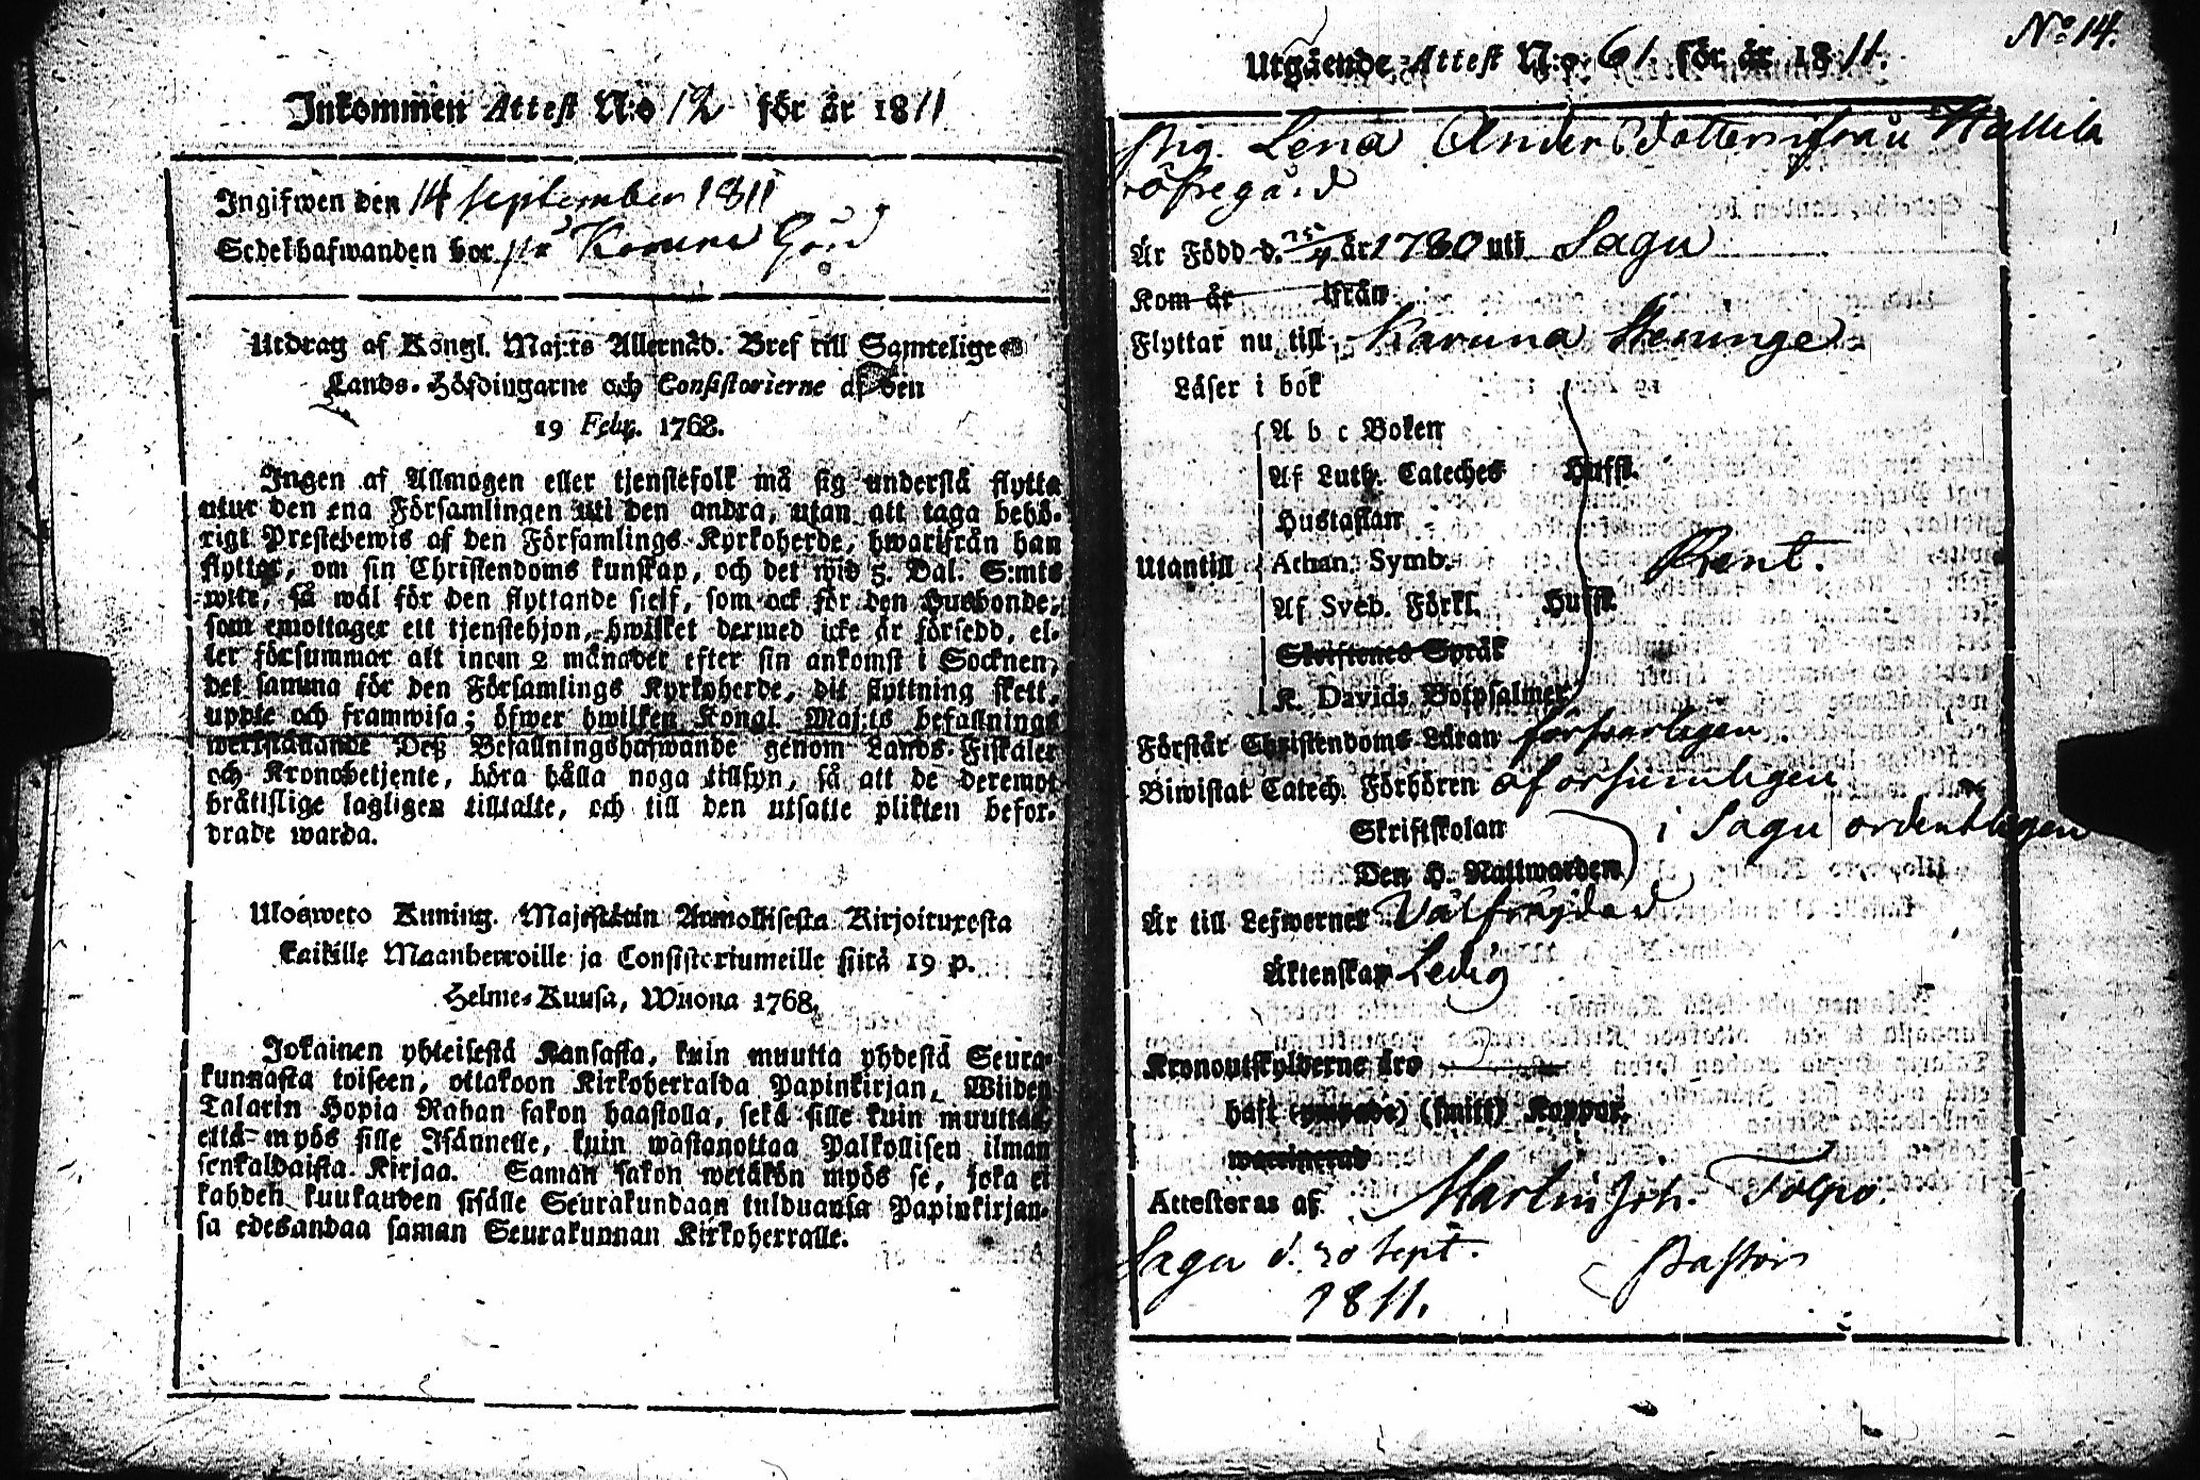 Inkommen Attest N:o 12 för år 1811
Ingifwen den 14 September 1811
Sedelhafwanden bor på Karuna Gård
Utdrag af Kongl. Maj:ts Allernåd. Bref till Samtelige
Lands-Höfdingarne och Consistorierne af den
19 Febr. 1768.
Ingen af Allmogen eller tjenstefolk må sig understå flytta
utur den ena Församlingen uti den andra, utan att taga behö-
rigt Prestebewis af den Församlings Kyrkoherde, hwarifrån han
flyttar, om sin Christendoms kunskap, och det wid 5. Dal. S:mts
wite, så wäl för den flyttande sjelf, som ock för den Husbonde,
som emottager ett tjenstehjon, hwilket dermed icke är försedd, el-
ler försummar att inom 2 månader efter sin ankomst i Socknen,
det samma för den Församlings Kyrkoherde, dit flyttning skett,
uppte och framwisa; öfwer hwilken Kongl. Maj:ts befallnings
werkställande Deß Befallningshafwande genom Lands-Fiskaler
och Kronobetjente, böra hålla noga tillsyn, så att de deremot
bråtislige lagligen tilltalte, och till den utsatte plikten befor-
drade warda.
Ulosweto Kuning. Majestätin Armollisesta Kirjoituxesta
kaikille Maanherroille ja Consistoriumeille siitä 19 p.
Helme-Kuusa, Wuona 1768.
Jokainen yhteisestä Kansasta, kuin muutta yhdestä Seura-
kunnasta toiseen, ottakoon Kirkoherralda Papinkirjan, Wiiden
Talarin Hopia Rahan sakon haastolla, sekä sille kuin muuttaa,
että myös sille Isännelle, kuin wastanottaa Palkollisen ilman
senkaldaista Kirjaa. Saman sakon wetäkön myös se, joka ei
kahden kuukauden sisälle Seurakundaan tulduansa Papinkirjan-
sa edesandaa saman Seurakunnan Kirkoherralle.
No 14.
Utgående Attest N:o 61. för år 1811.
Pig. Lena Anders Dotter ifrån Hallila
öfregård
Är Född d. 25/4 år 1780 uti Sagu
Kom år ifrån
Flyttar nu till Karuna Steninge
Läser i bok
A b c Boken
Af Luth. Cateches Hufst.
Hustaflan
Utantill Athan. Symb. Rent.
Af Sveb. Förkl. Hufst.
Skriftenes Språk
K. Davids Botpsalmer
Förstår Christendoms Läran försvarligen
Biwistat Catech. Förhören oförsumligen
Skriftskolan i Sagu ordentligen
Den H. Nattwarden
Är till Lefwernet Välfrägdad
Äktenskap Ledig
Kronoutskylderne äro
haft (ympade) (smitt) Koppor.
Attesteras af Martin Joh. Tolpo.
Sagu d. 20 Sept. Pastor
1811.